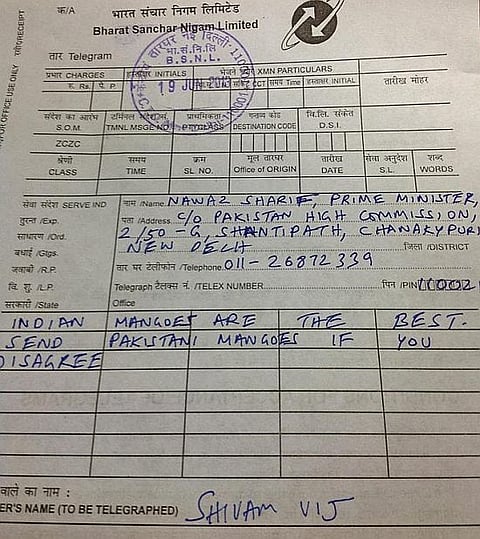 क/A
भारत संचार निगम लिमिटेड
Bharat Sanchar Nigam Limited
तार Telegram
भा.सं.नि.लि
B.S.N.L.
19 JUN 2013
110001
FOR OFFICE USE ONLY
रसीद/RECEIPT
प्रभार CHARGES
हस्ताक्षर INITIALS
XMN PARTICULARS
तारीख मोहर
रु. Rs. पै. P
CCT समय Time हस्ताक्षर INITIAL
संदेश का आरंभ
S.O.M.
TMNL MSGE NO.
प्राथमिकता
गन्तव्य कोड
DESTINATION CODE
वि.लि. संकेत
D.S.I.
ZCZC
श्रेणी
CLASS
समय
TIME
क्रम
SL. NO.
मूल तारघर
Office of ORIGIN
तारीख
DATE
सेवा अनुदेश
S.L.
शब्द
WORDS
सेवा संदेश SERVE IND
तुरन्त /Exp.
साधारण /Ord.
बधाई /Gtgs.
जवाबी /R.P.
वि. शु. /L.P.
सरकारी /State
नाम /Name. NAWAZ SHARIF, PRIME MINISTER,
पता /Address. C/O PAKISTAN HIGH COMMISSION,
2/50-G, SHANTIPATH, CHANAKYPURI
NEW DELHI
जिला /DISTRICT
तार घर टेलीफोन /Telephone. 011-26872339
Telegraph टैलक्स नं. /TELEX NUMBER
पिन /PIN
Office
INDIAN MANGOES ARE THE BEST.
SEND PAKISTANI MANGOES IF YOU
DISAGREE
वाले का नाम :
ER'S NAME (TO BE TELEGRAPHED) SHIVAM VIJ